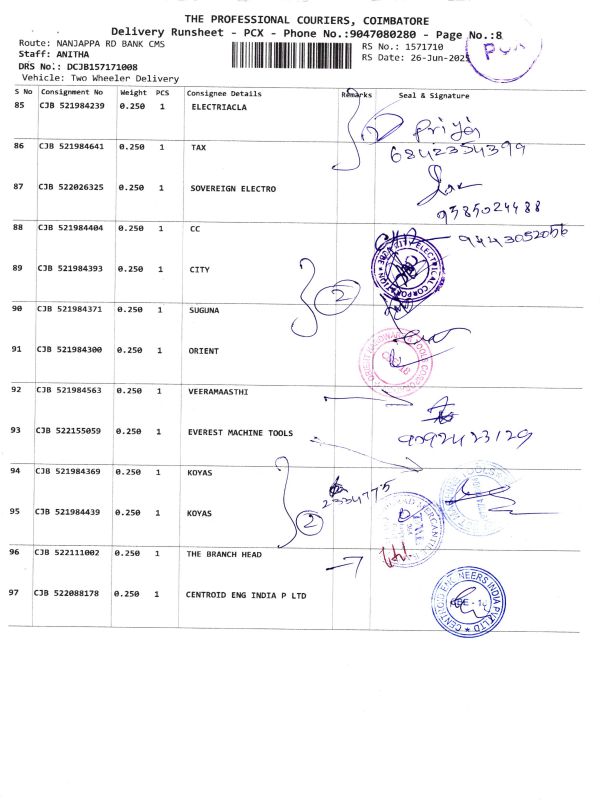 THE PROFESSIONAL COURIERS, COIMBATORE
Delivery Runsheet - PCX - Phone No.:9047080280 - Page No.:8
Route: NANJAPPA RD BANK CMS
RS No.: 1571710
Staff: ANITHA
RS Date: 26-Jun-2025
DRS No.: DCJB157171008
Vehicle: Two Wheeler Delivery
PCX
S No Consignment No Weight PCS Consignee Details Remarks Seal & Signature
85 CJB 521984239 0.250 1 ELECTRIACLA
2 Priya
86 CJB 521984641 0.250 1 TAX
6842354399
87 CJB 522026325 0.250 1 SOVEREIGN ELECTRO
9385024488
88 CJB 521984404 0.250 1 CC
9443052056
89 CJB 521984393 0.250 1 CITY
CITY ELECTRICAL CORPORATION
2
90 CJB 521984371 0.250 1 SUGUNA
91 CJB 521984300 0.250 1 ORIENT
92 CJB 521984563 0.250 1 VEERAMAASTHI
93 CJB 522155059 0.250 1 EVEREST MACHINE TOOLS
9092423129
94 CJB 521984369 0.250 1 KOYAS
2334775
95 CJB 521984439 0.250 1 KOYAS
2
96 CJB 522111002 0.250 1 THE BRANCH HEAD
97 CJB 522088178 0.250 1 CENTROID ENG INDIA P LTD
CENTROID ENGINEERS INDIA PVT LTD